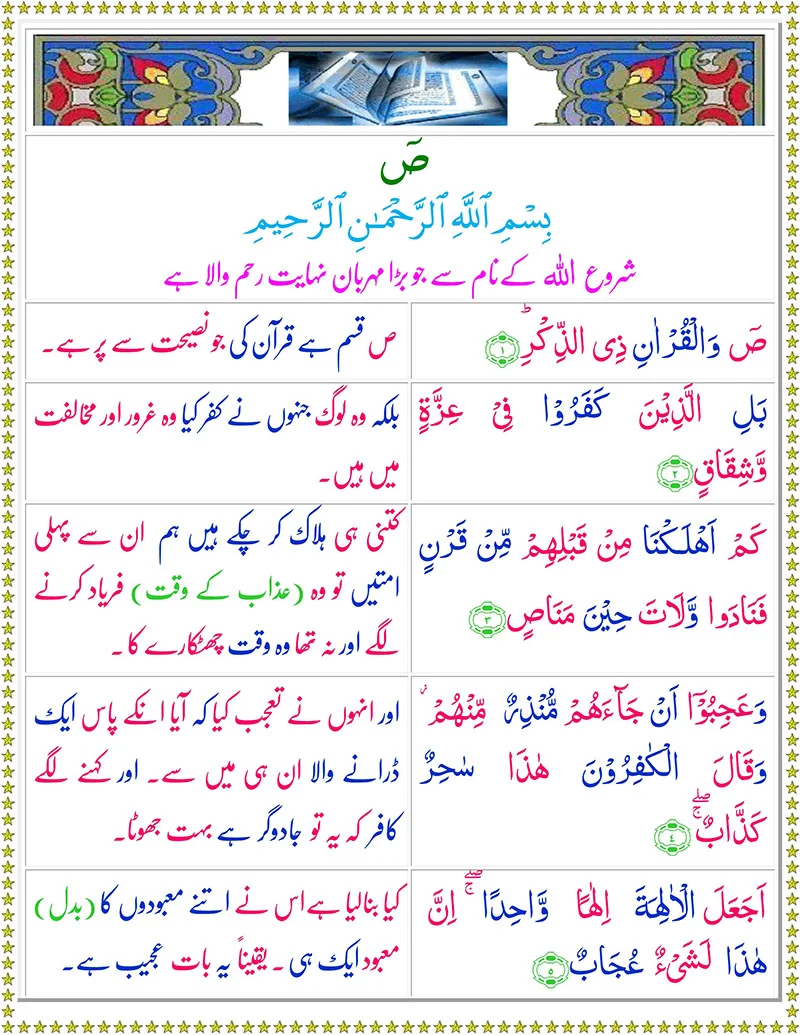 صٓ
بِسْمِ ٱللَّهِ ٱلرَّحْمَـٰنِ ٱلرَّحِيمِ
شروع اللہ کے نام سے جو بڑا مہربان نہایت رحم والا ہے
صٓ وَالْقُرْاٰنِ ذِى الذِّكْرِؕ‏ ﴿۱﴾
ص قسم ہے قرآن کی جو نصیحت سے پر ہے۔
بَلِ الَّذِيْنَ كَفَرُوْا فِىْ عِزَّةٍ
وَّشِقَاقٍ‏ ﴿۲﴾
بلکہ وہ لوگ جنہوں نے کفر کیا وہ غرور اور مخالفت
میں ہیں۔
كَمْ اَهْلَـكْنَا مِنْ قَبْلِهِمْ مِّنْ قَرْنٍ
فَنَادَوا وَّلَاتَ حِيْنَ مَنَاصٍ‏ ﴿۳﴾
کتنی ہی ہلاک کر چکے ہیں ہم ان سے پہلی
امتیں تو وہ (عذاب کے وقت) فریاد کرنے
لگے اور نہ تھا وہ وقت چھٹکارے کا۔
وَعَجِبُوْۤا اَنْ جَآءَهُمْ مُّنْذِرٌ مِّنْهُمْ‌ۙ
وَقَالَ الْكٰفِرُوْنَ هٰذَا سٰحِرٌ
كَذَّابٌ‌ ۖ‌ۚ‏ ﴿٤﴾
اور انہوں نے تعجب کیا کہ آیا انکے پاس ایک
ڈرانے والا ان ہی میں سے۔ اور کہنے لگے
کافر کہ یہ تو جادوگر ہے بہت جھوٹا۔
اَجَعَلَ الْاٰلِهَةَ اِلٰهًا وَّاحِدًا ‌ۖ‌ۚ اِنَّ
هٰذَا لَشَىْءٌ عُجَابٌ‏ ﴿۵﴾
کیا بنالیا ہے اس نے اتنے معبودوں کا (بدل)
معبود ایک ہی۔ یقیناً یہ بات عجیب ہے۔